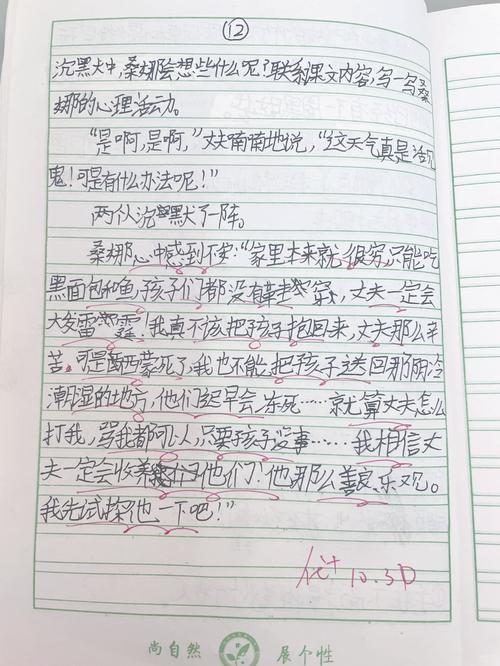 12
沉默中,桑娜会想些什么呢?联系课文内容,写一写桑
娜的心理活动。
“是啊,是啊,”丈夫喃喃地说,“这天气真是活见
鬼!可是有什么办法呢!”
两个人沉默了一阵。
桑娜心中感到不安:“家里本来就很穷,只能吃
黑面包和鱼,孩子们都没有鞋穿,丈夫一定会
大发雷霆!我真不该把孩子抱回来,丈夫那么辛
苦。可是西蒙死了,我也不能把孩子送回那阴冷
潮湿的地方,他们迟早会冻死……就算丈夫怎么
打我,骂我都可以,只要孩子没事……我相信丈
夫一定会收养他们!他那么善良、乐观。
我先试探他一下吧!”
优+ 10.30
尚自然 展个性